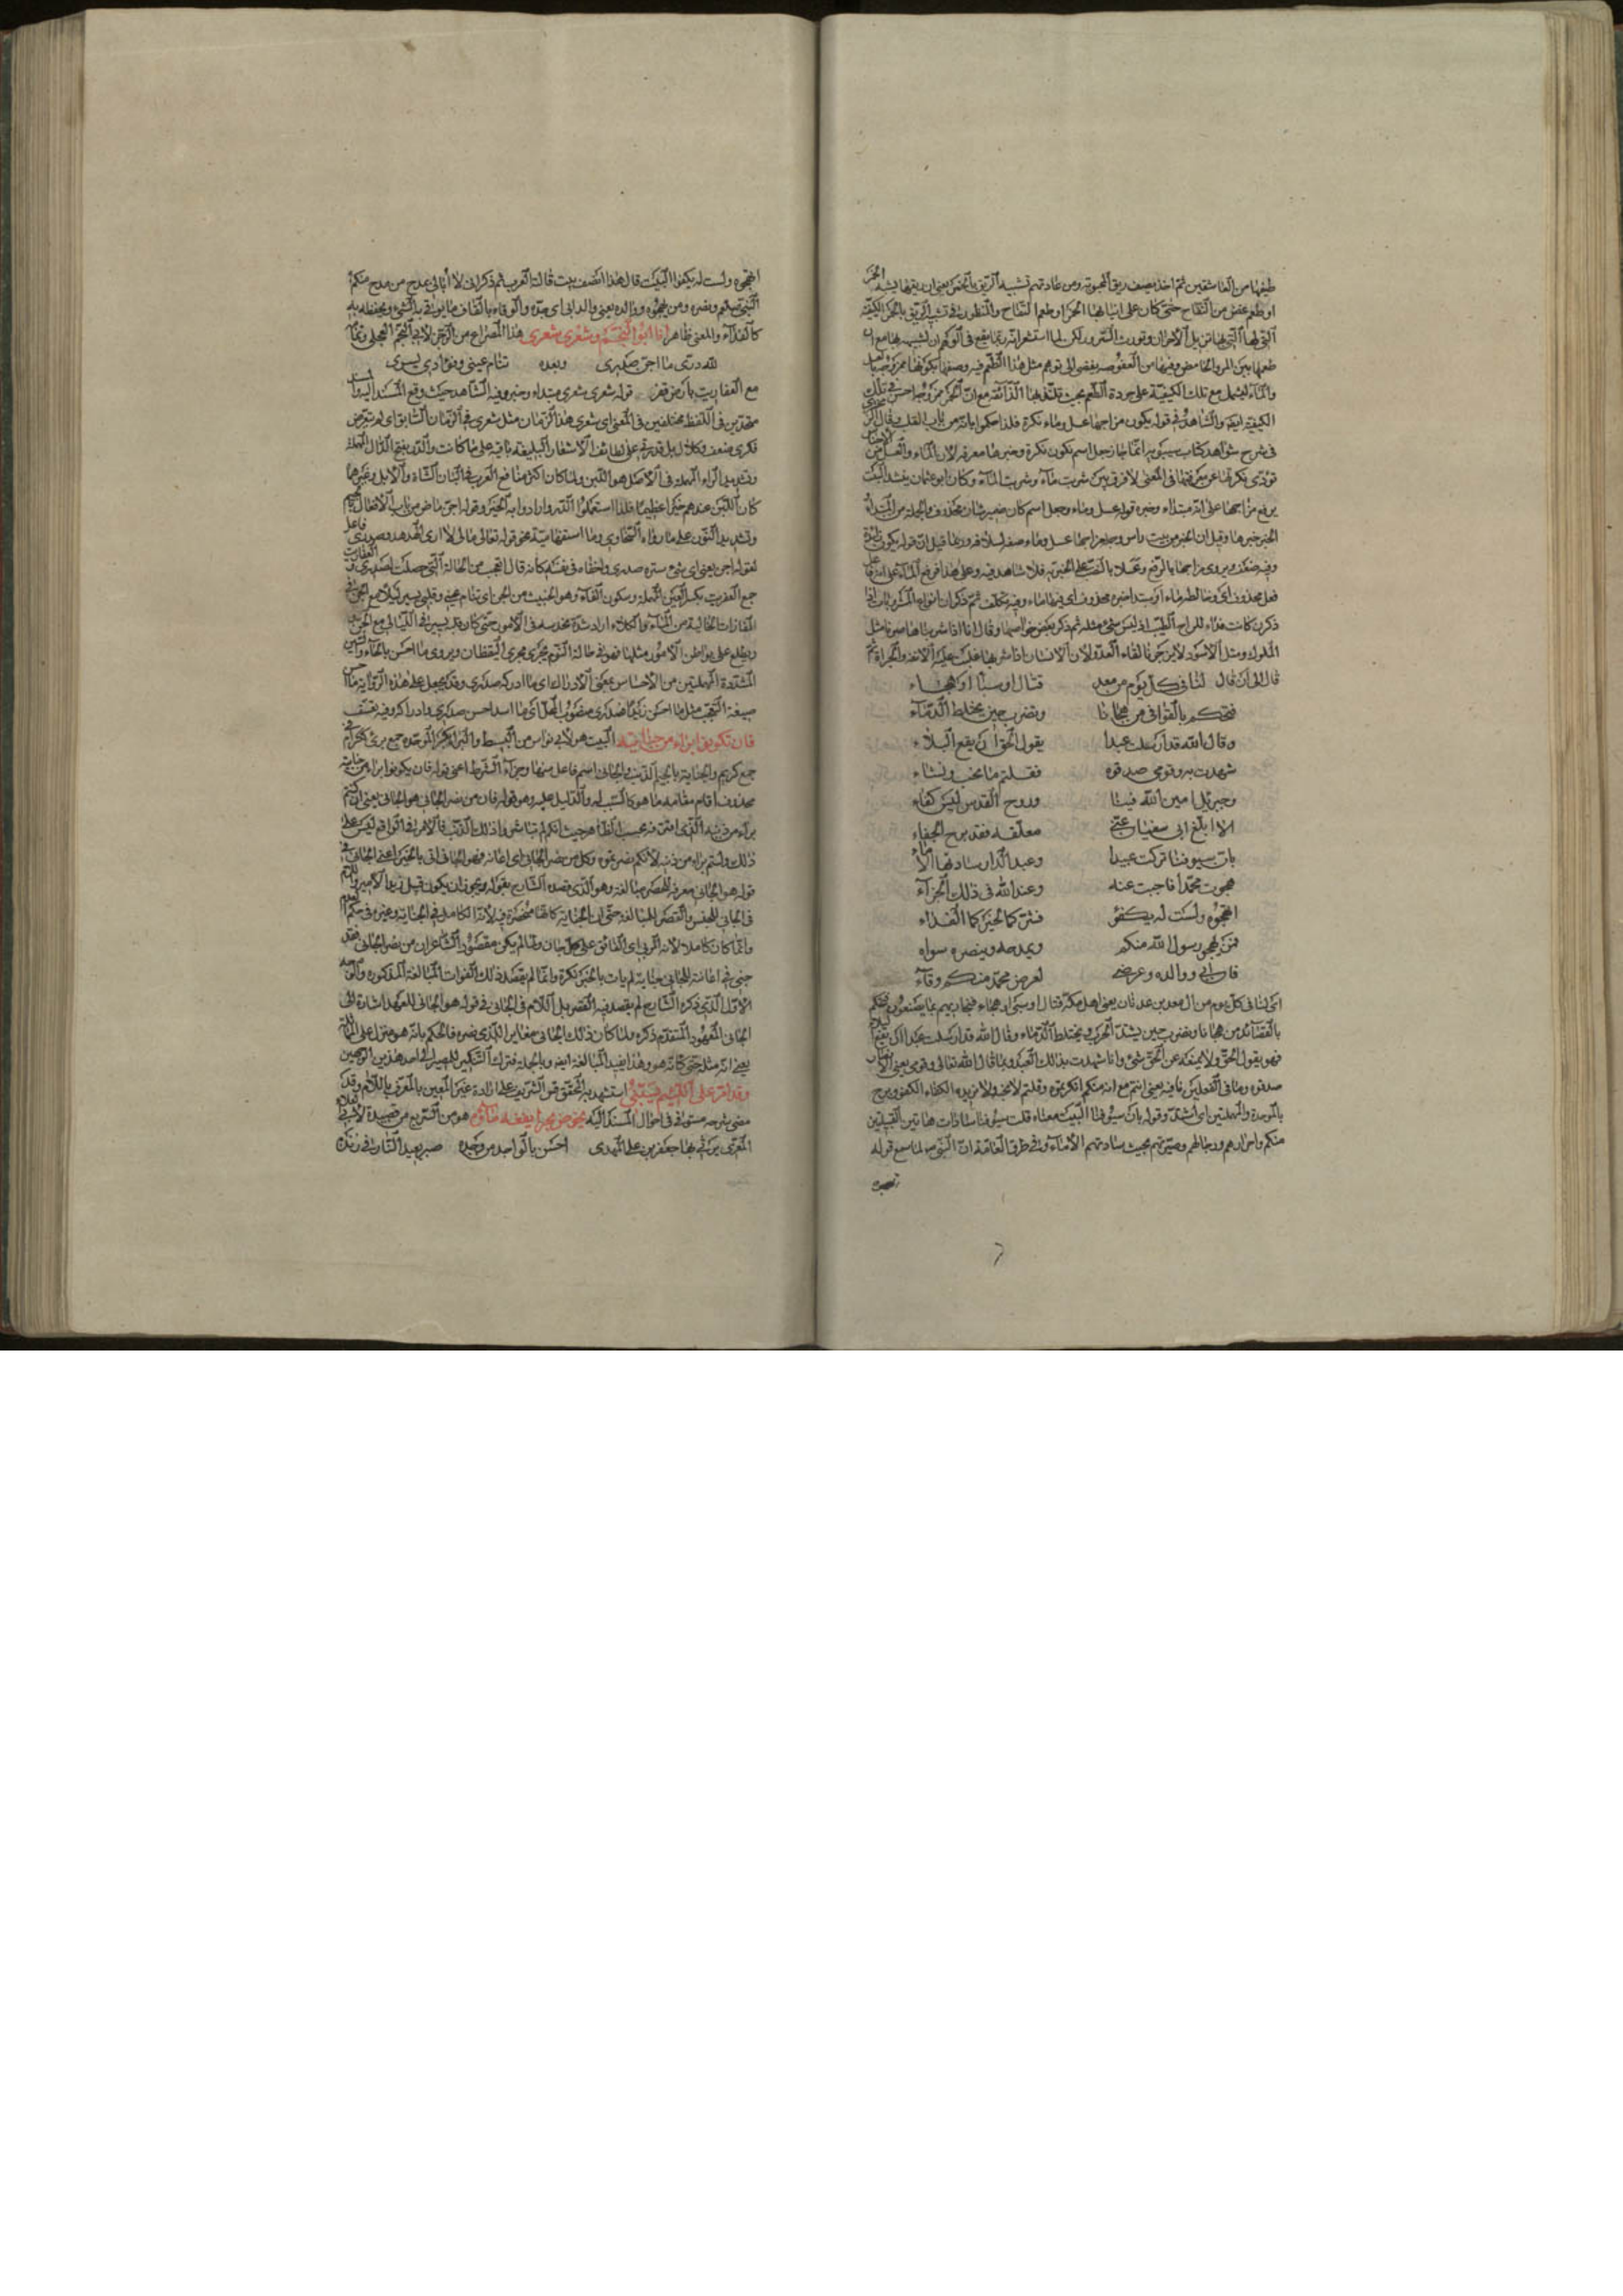 طيفها من العاشقين ثم اخذ يصف ريق المحبوبة ومن عادتهم تشبيه الريق بالخمر يعني ان ريقها يشبه الخمر
او طعم غض من التفاح حتى كان على انيابها الخمر او طعم التفاح والنظر في تشبيه الريق بالخمر الكيفية
التي لها التي بها تزيل الاحزان وتورث السرور لكن لما استشعر انه ربما يقع في الوهم ان تشبيه بها مع ان
طعمها بين المر والحامض وفيها من العفوصة يفضي الى توهم مثل هذا الطعم فيه وصفها بكونها ممزوجة بالعسل
والماء ليشمل مع تلك الكيفية على جودة الطعم بحيث تلتذ بها الذائقة مع ان الخمر ممزوجة احسن في تلك
الكيفية ايضا والشاهد في قوله يكون مزاجها عسل وماء نكرة فلذا حكموا بانه من باب القلب وقال
في شرح شواهد كتاب سيبويه انما جاز جعل اسم تكون نكرة وخبرها معرفة لان الماء والعسل من
تؤدي نكرتها عن معرفتها في المعنى لا فرق بين شربت ماء وشربت الماء وكان ابو عثمان ينشد البيت
يرفع مزاجها على انه مبتداء وخبره قوله عسل وماء وجعل اسم كان ضمير شان محذوف والجملة من المبتداء
الخبر خبرها وقيل ان الخبر من بيت راس وجملة مزاجها عسل وماء صفة لسلافة وربما قيل ان قوله يكون زائدة
وفيه ضعف ويروى مزاجها بالرفع وعسلا بالنصب على الخبرية فلا شاهد فيه وعلى هذا فرفع الماء على انه فاعل
فعل محذوف اي وخالطه ماء او مبتدا خبره محذوف اي فيها ماء وفيه تكلف ثم ذكر ان انواع المشروبات اذا
ذكرن كانت فداء للراح الطيب اذ ليس شيء مثله ثم ذكر بعض خواصها وقال انا اذا شربناها صرنا مثل
الملوك ومثل الاسود لا يزجرنا لقاء العدو لان الانسان اذا شربها غلبت عليه الانفة والجراءة ثم
قال الى ان قال لنا في كل يوم من معد قتال او سباء او هجاء
فنحكم بالقوافي من هجانا ونضرب حين يختلط الدماء
وقال الله قد ارسلت عبدا يقول الحق ان يقع البلاء
شهدت به وقومي صدقوه فقلتم ما نجب ونشاء
وجبريل امين الله فينا وروح القدس ليس كفاء
الا ابلغ ابي سفيان عني مغلغلة فقد برح الجفاء
بان سيوفنا تركت عبيدا وعبد الدار سادتها الاماء
هجوت محمدا فاجبت عنه وعند الله في ذلك الجزاء
اتهجوه ولست له بكفو فشركما لخيركما الفداء
فمن يهجو رسول الله منكم ويمدحه وينصره سواه
فان ابي ووالده وعرضي لعرض محمد منكم وقاء
اي لنا في كل يوم من آل معد بن عدنان يعني اهل مكة قتال او سبي او هجاء فيجابهم بما يصنعون فنحكم
بالقصائد من هجانا ونضرب حين يشتد الحرب ويختلط الدماء وقال الله قد ارسلت عبدا ان يقع البلاء
فهو يقول الحق ولا يمنعه عن الحق شيء وانا شهدت بذلك العبد وبما قال الله تعالى وقومي يعني الانصار
صدقوه وما في الفعلين نافية يعني انتم مع انه منكم انكرتموه وقلتم لا نحبه ولا نريده الكفاء الكفو وبرح
بالموحدة والمهملتين اي اشتد وقوله بان سيوفنا البيت معناه قلت سيوفنا سادات هاتين القبيلتين
منكم واحرارهم ورجالهم وصيرتهم بحيث سادتهم الاماء وفي طرق العامة ان النبي ص لما سمع قوله
اتهجوه
اتهجوه ولست له بكفو البيت قال هذا انصف بيت قالته العرب ثم ذكر اني لا ابالي بمدح من مدح منكم
النبي صلعم ونصره ومن يهجوه ووالده يعني والد ابي اي جده والوقاء بالقاف ما يوقى به الشيء ويحفظ به
كالفداء والمعنى ظاهر انا ابو النجم وشعري شعري هذا المصراع من الرجز لابي النجم العجلي وتمامه
لله دري ما اجن صدري وبعده تنام عيني وفؤادي يسري
مع العفاريت بارض قفر قوله شعري شعري مبتداء وخبر وفيه الشاهد حيث وقع المسند اليه والمسند
متحدين في اللفظ مختلفين في المعنى اي شعري هذا الزمان مثل شعري في الزمان السابق اي لم يتعرض
فكري ضعف وكلال بل قدرتي على لطائف الاشعار البليغة باقية على ما كانت والدر بفتح الدال المهملة
وتشديد الراء المهملة في الاصل هو اللبن ولما كان اكثر منافع العرب في البان الشاة والابل وغيرهما
كان اللبن عندهم خيرا عظيما فلذا استعملوا الدر وارادوا به الخير وقوله اجن ماض من باب الافعال بالجيم
وتشديد النون على ما رواه السخاوي وما استفهامية نحو قوله تعالى ما لي لا ارى الهدهد وصدري فاعل
لقوله اجن يعني اي شيء ستره صدري واخفاه في نفسه كانه قال اتعجب من الحالة التي حصلت لصدري والعفاريت
جمع العفريت بكسر العين المهملة وسكون الفاء وهو الخبيث من الجن اي تنام عيني وقلبي يسير ليلا مع الجن في
المفازات الخالية من الماء والكلاء اراد شدة حدسه في الامور حتى كان قلبه يسير في الليالي مع الجن
ويطلع على بواطن الامور مثلها فهو في حالة النوم يجري مجرى اليقظان ويروى ما احس بالحاء والسين
المشددة المهملتين من الاحساس بمعنى الادراك اي ما ادركه صدري وقد يجعل على هذه الرواية ما احس
صيغة التعجب مثل ما احسن زيدا فصدري منصوب المحل اي ما اشد احس صدري وادراكه وفيه تعسف
فان تكونوا براء من جنايته البيت هو لابي نواس من البسيط والبراء بكسر الموحدة جمع بريء ككرام في
جمع كريم والجناية بالجيم الذنب والجاني اسم فاعل منها وجزاء الشرط اعني قوله فان يكونوا براء من جنايته
محذوف اقام مقامه ما هو كالسبب له والدليل عليه وهو قوله فان من نصر الجاني هو الجاني يعني ان كنتم
براء من ذنبه الذي اقترفه بحسب الظاهر حيث انكم لم تباشروا ذلك الذنب فالامر في الواقع ليس على
ذلك ولستم براء من ذنبه لانكم نصرتموه وكل من نصر الجاني اي اعانه فهو الجاني اتى بالخبر اعني الجاني في
قوله هو الجاني معرفة للحصر مبالغة وهو الذي قصده الشارح بقوله ويجوز ان يكون قبيل زيد الامير واللام
في الجاني للجنس والقصر للمبالغة حتى ان الجناية كانها منحصرة فيه لانه الكامل في الجناية وغيره في حكم العدم
وانما كان كاملا لانه اربى اي الفائق على كل جان ولما لم يكن مقصود الشاعر ان من نصر الجاني فقد
جنى في اعانته للجاني جناية لم يات بالخبر نكرة وانما لم يقصد ذلك لفوات المبالغة المذكورة والوجه
الاول الذي ذكره الشارح لم يقصد فيه القصر بل اللام في الجاني في قوله هو الجاني للعهد اشارة الى
الجاني المعهود المتقدم ذكره ولما كان ذلك الجاني مغاير الذي نصره فالحكم بانه هو منزل على المماثلة
يعني انه مثله حتى كانه هو وهذا يفيد المبالغة ايضا وبالجملة فترك التنكير للمصير الى احد هذين الوجهين
ولقد امر على اللئيم يسبني استشهد به لتحقق قول الشريف على ارادة غير المعين بالمعرف باللام وقد
مضى شرحه مستوفى في احوال المسند اليه يخوض بحرا نقعه ماؤه هو من السريع من قصيدة لابي العلاء
المعري يرثي بها جعفر بن علي المهدي احسن بالواجد من وجده صبر يعيد النار في زنده